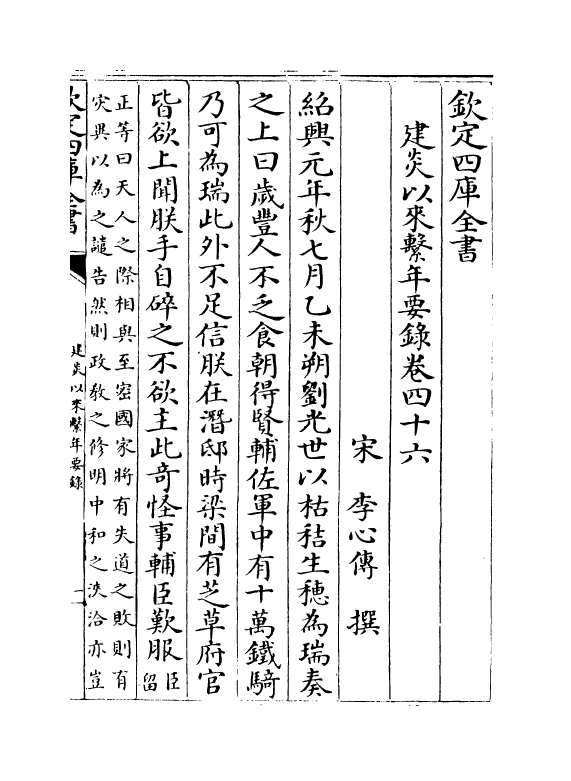 欽定四庫全書
建炎以來繫年要錄卷四十六
宋 李心傳 撰
紹興元年秋七月乙未朔劉光世以枯秸生穗為瑞奏
之上曰歲豐人不乏食朝得賢輔佐軍中有十萬鐵騎
乃可為瑞此外不足信朕在潛邸時梁間有芝草府官
皆欲上聞朕手自碎之不欲主此奇怪事輔臣歎服臣留
正等曰天人之際相與至密國家將有失道之敗則有
灾異以為之譴告然則政教之修明中和之浹洽亦豈
欽定四庫全書
建炎以來繫年要錄